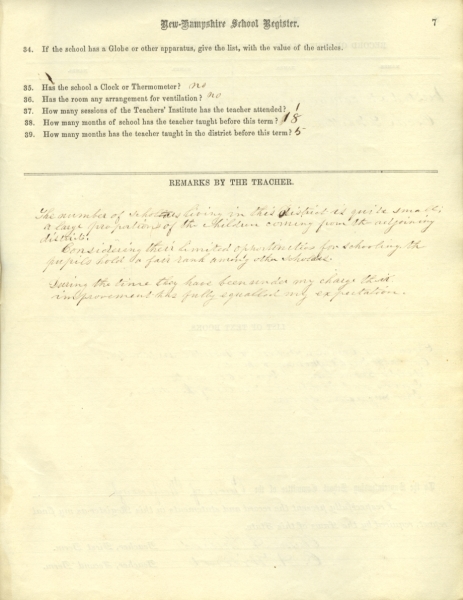 New-Hampshire School Register.
7
34. If the school has a Globe or other apparatus, give the list, with the value of the articles.
35. Has the school a Clock or Thermometer? no
36. Has the room any arrangement for ventilation? no
37. How many sessions of the Teachers' Institute has the teacher attended? 1
38. How many months of school has the teacher taught before this term? 18
39. How many months has the teacher taught in the district before this term? 5
REMARKS BY THE TEACHER.
The number of scholars living in this district is quite small;
a large proportion of the Children coming from the adjoining
districts.
Considering their limited opportunities for schooling the
pupils hold a fair rank among other scholars.
During the time they have been under my charge their
improvement has fully equalled my expectation.